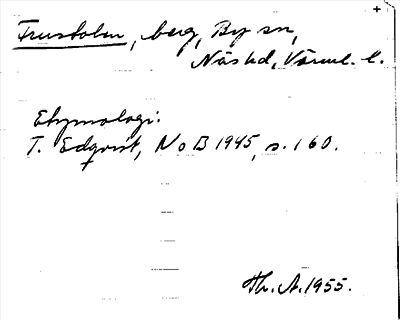 Frustolen, berg, By sn,
Näs hd, Värml. l.
Etymologi:
T. Edqvist, NoB 1945, s. 160.
Th. A. 1955.